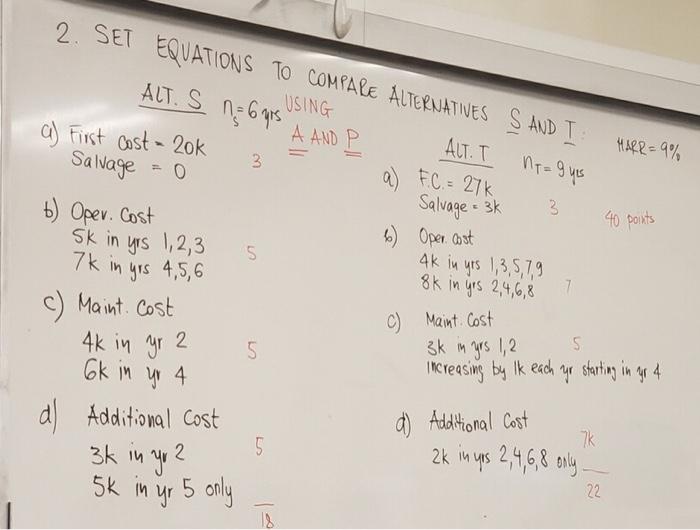 2. SET EQUATIONS TO COMPARE ALTERNATIVES S AND T:
USING A AND P
MARR = 9%
40 points
ALT. S ns = 6 yrs
a) First cost = 20k
Salvage = 0 3
b) Oper. Cost
5k in yrs 1,2,3 5
7k in yrs 4,5,6
c) Maint. Cost
4k in yr 2 5
6k in yr 4
d) Additional Cost
3k in yr 2 5
5k in yr 5 only
18
ALT. T nT = 9 yrs
a) F.C. = 27k
Salvage = 3k 3
b) Oper. cost
4k in yrs 1,3,5,7,9
8k in yrs 2,4,6,8 7
c) Maint. Cost
3k in yrs 1,2 5
increasing by 1k each yr starting in yr 4
d) Additional Cost
7k
2k in yrs 2,4,6,8 only
22